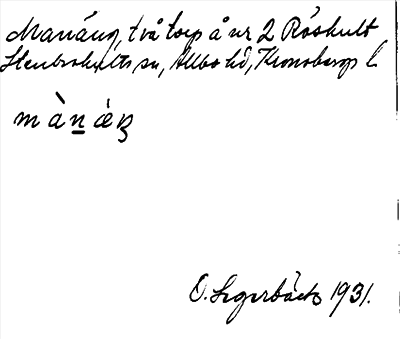 Manäng, två torp å nr 2 Röshult
Stenbrohults sn, Allbo hd, Kronobergs l.
O. Segerbäck 1931.